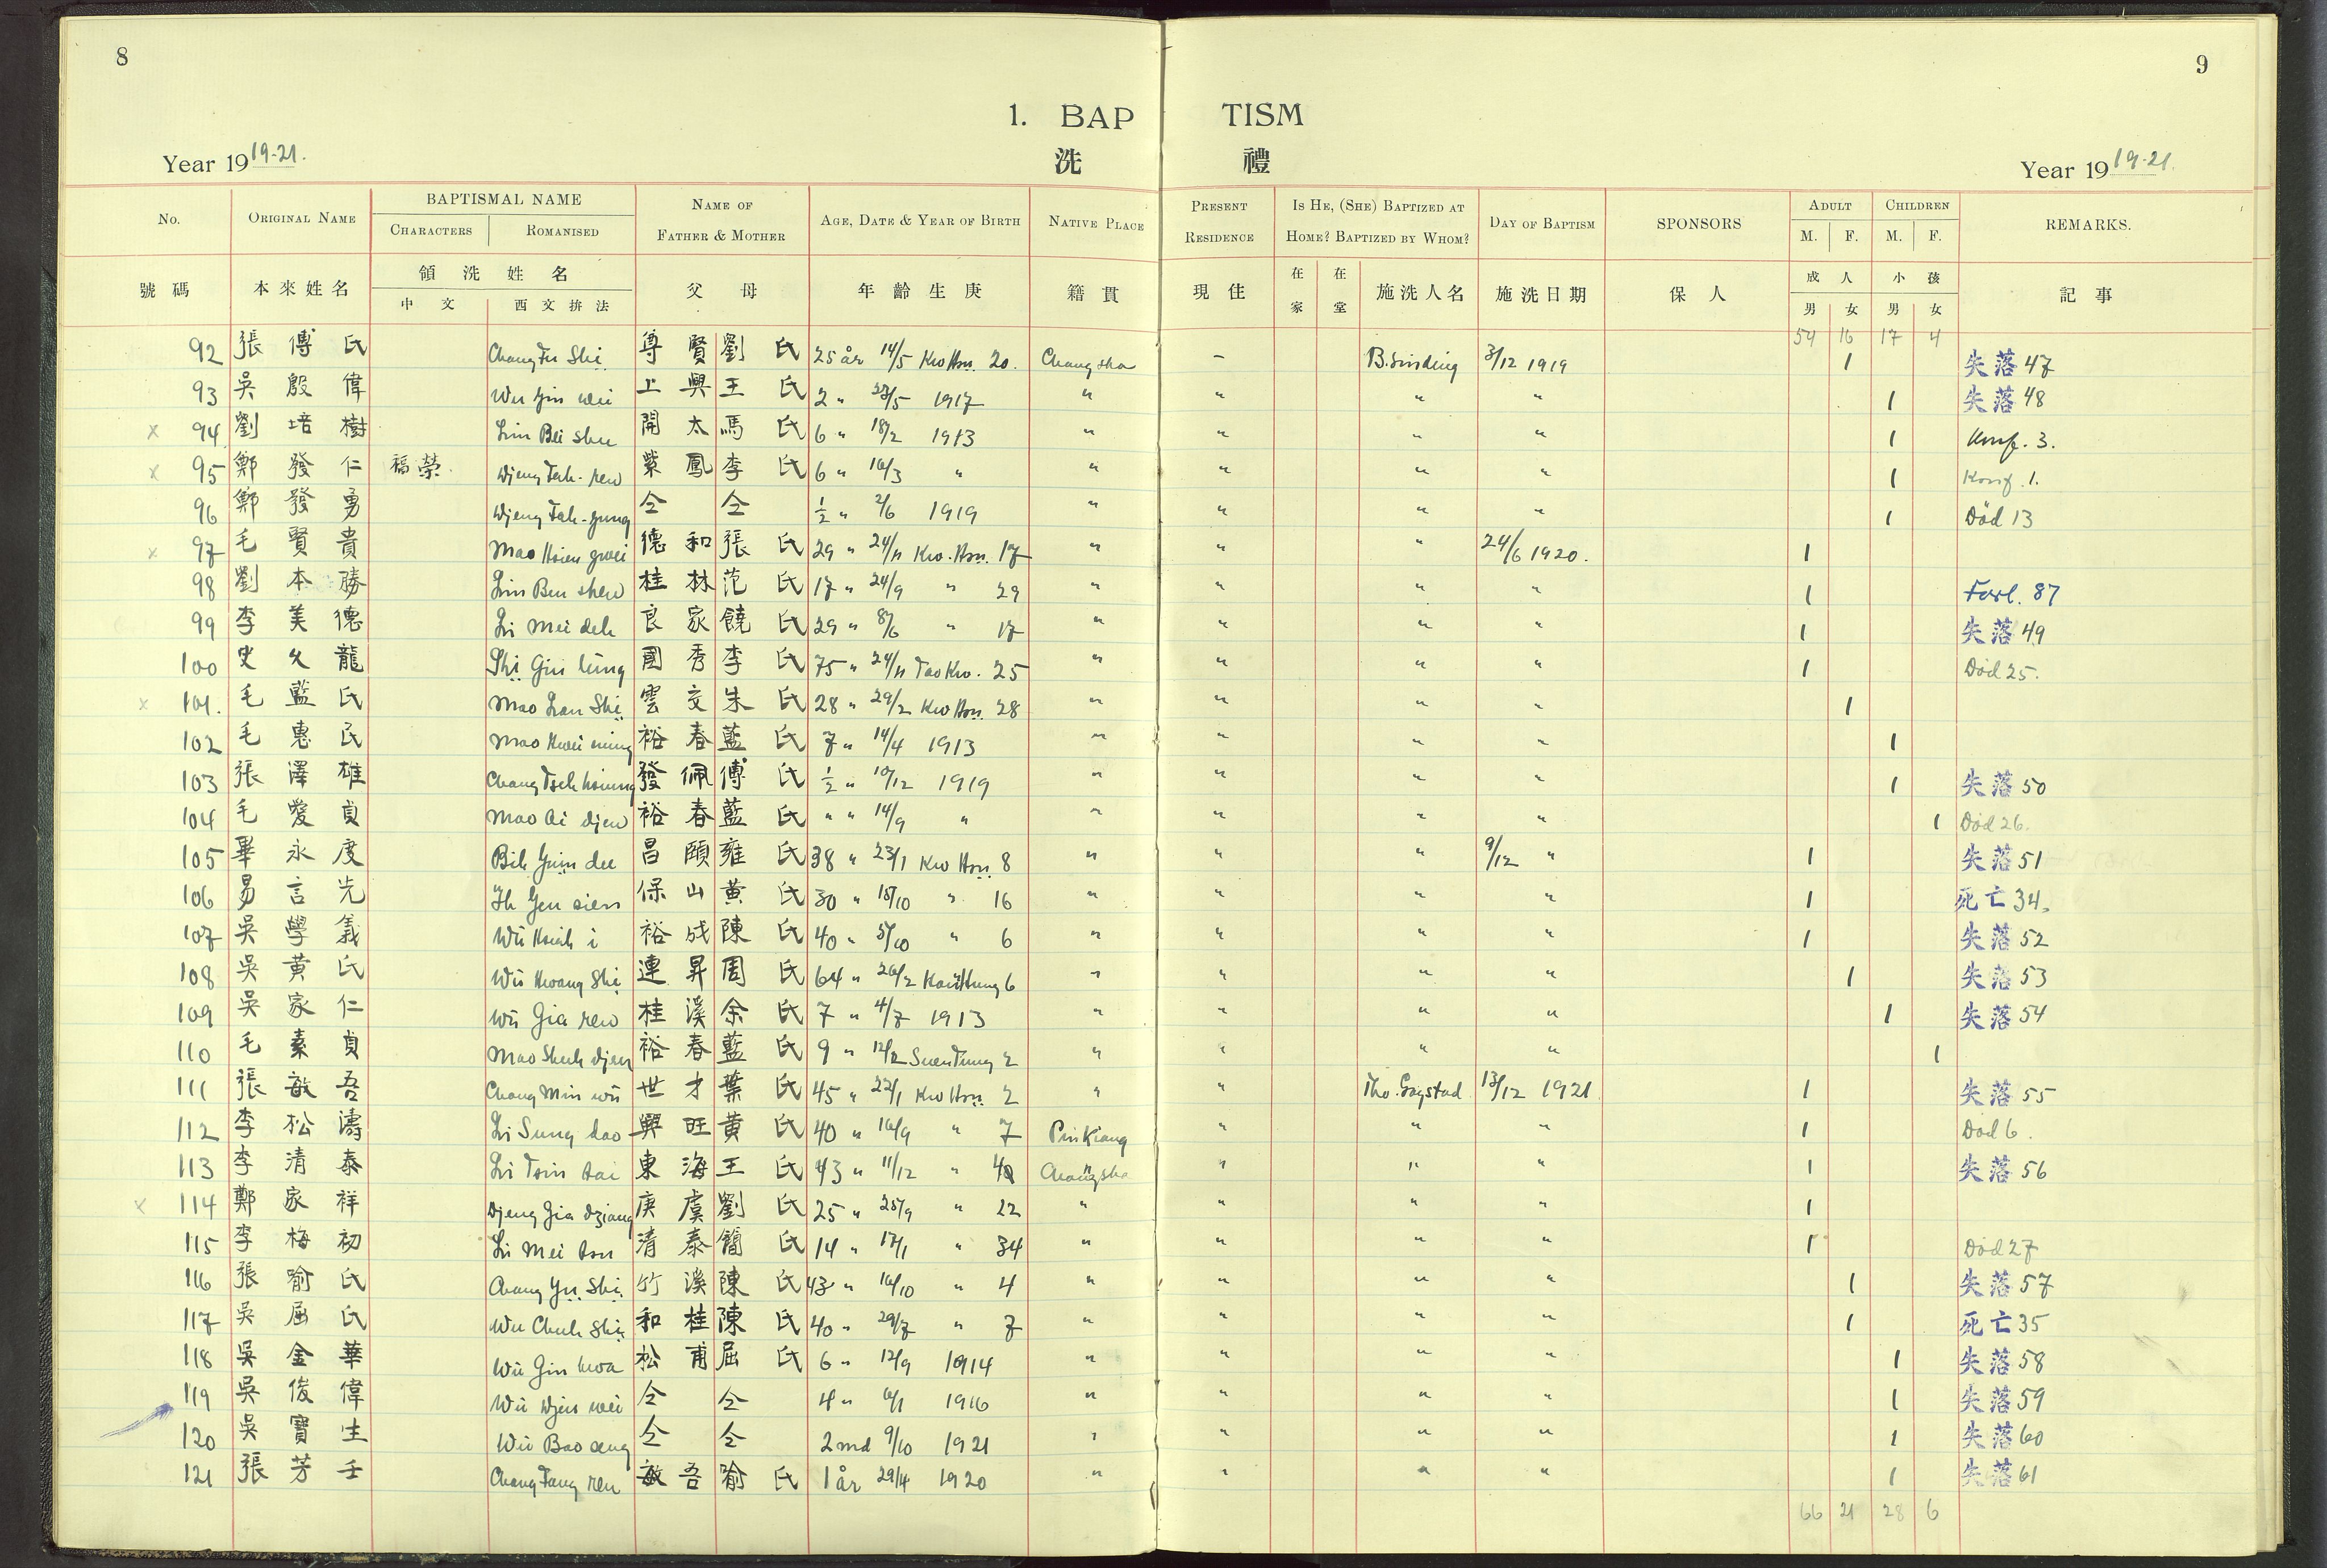 8
9
1. BAP TISM
Year 1919-21. 洗 禮 Year 1919-21.
No. ORIGINAL NAME BAPTISMAL NAME CHARACTERS ROMANISED NAME OF FATHER & MOTHER AGE, DATE & YEAR OF BIRTH NATIVE PLACE PRESENT RESIDENCE IS HE, (SHE) BAPTIZED AT HOME? BAPTIZED BY WHOM? DAY OF BAPTISM SPONSORS ADULT M. F. CHILDREN M. F. REMARKS.
號碼 本來姓名 領洗姓名 中文 西文拚法 父母 年齡生庚 籍貫 現住 在家 在堂 施洗人名 施洗日期 保人 成人 男 女 小孩 男 女 記事
54 16 17 4
92 張傅氏 Chang Fu Shi 尊賢 劉氏 25 år 14/5 Kwo Hsü 20. Changsha – B. Sinding 3/12 1919 1 失落 47
93 吳殷偉 Wu Yin wei 上興 王氏 2 " 23/5 1917 " " " " 1 失落 48
x 94 劉培樹 Liu Bei shu 開太 馬氏 6 " 18/2 1913 " " " " 1 Konf. 3.
x 95 鄭發仁 福榮. Djeng Fah-ren 紫鳳 李氏 6 " 16/3 " " " " " 1 Konf. 1.
96 鄭發勇 Djeng Fah-yung 仝 仝 1/2 " 2/6 1919 " " " " 1 Död 13
x 97 毛賢貴 Mao Hsien gwei 德和 張氏 29 " 24/11 Kwo. Hsü. 17 " " " 24/6 1920. 1
98 劉本勝 Liu Ben shen 桂林 范氏 17 " 24/9 " 29 " " " " 1 Forl. 87
99 李美德 Li Mei deh 良家 饒氏 29 " 8/6 " 17 " " " " 1 失落 49
100 史久龍 Shi Giu lüng 國秀 李氏 75 " 24/11 Tao Kw. 25 " " " " 1 Död 25.
x 101. 毛藍氏 Mao Lan Shi 雲交 朱氏 28 " 29/2 Kwo Hsü 28 " " " " 1
102 毛惠民 Mao Hwei ming 裕春 藍氏 7 " 14/4 1913 " " " " 1
103 張澤雄 Chang Tseh hsiung 發佩 傅氏 1/2 " 10/12 1919 " " " " 1 失落 50
104 毛愛貞 Mao Ai djen 裕春 藍氏 " " 14/9 " " " " " 1 Död 26.
105 畢永度 Bih Yuin du 昌頤 雍氏 38 " 23/1 Kwo Hsü 8 " " " 9/12 " 1 失落 51
106 易言先 Ih Yen sien 保山 黃氏 30 " 18/10 " 16 " " " " 1 死亡 34.
107 吳學義 Wu Hsioh i 裕成 陳氏 40 " 5/10 " 6 " " " " 1 失落 52
108 吳黃氏 Wu Hwang Shi 連昇 周氏 64 " 26/2 6 " " " " 1 失落 53
109 吳家仁 Wu Gia ren 桂溪 余氏 7 " 4/7 1913 " " " " 1 失落 54
110 毛素貞 Mao Shuh djen 裕春 藍氏 9 " 12/2 Suen Tung 2 " " " " 1
111 張敏吾 Chang Min wu 世才 葉氏 45 " 22/1 Kwo Hsü 2 " " Tho. Gogstad 13/12 1921. 1 失落 55
112 李松濤 Li Sung tao 興旺 黃氏 40 " 16/9 " 7 Pin Kiang " " " 1 Död 6.
113 李清泰 Li Tsin tai 東海 王氏 43 " 11/12 " 4 Changsha " " " 1 失落 56
x 114 鄭家祥 Djeng Gia dziang 庚虞 劉氏 25 " 25/9 " 22 " " " " 1
115 李梅初 Li Mei tsu 清泰 簡氏 14 " 17/1 " 34 " " " " 1 Död 27
116 張喻氏 Chang Yü Shi 竹溪 陳氏 43 " 16/10 " 4 " " " " 1 失落 57
117 吳屈氏 Wu Chuh Shi 和桂 陳氏 40 " 29/7 " 7 " " " " 1 死亡 35
118 吳金華 Wu Gin hwa 松甫 屈氏 6 " 12/9 1914 " " " " 1 失落 58
119 吳俊偉 Wu Djin wei 仝 仝 4 " 6/1 1916 " " " " 1 失落 59
120 吳寶生 Wu Bao seng 仝 仝 2 md 9/10 1921 " " " " 1 失落 60
121 張芳壬 Chang Fang ren 敏吾 喻氏 1 år 29/4 1920 " " " " 1 失落 61
66 21 28 6